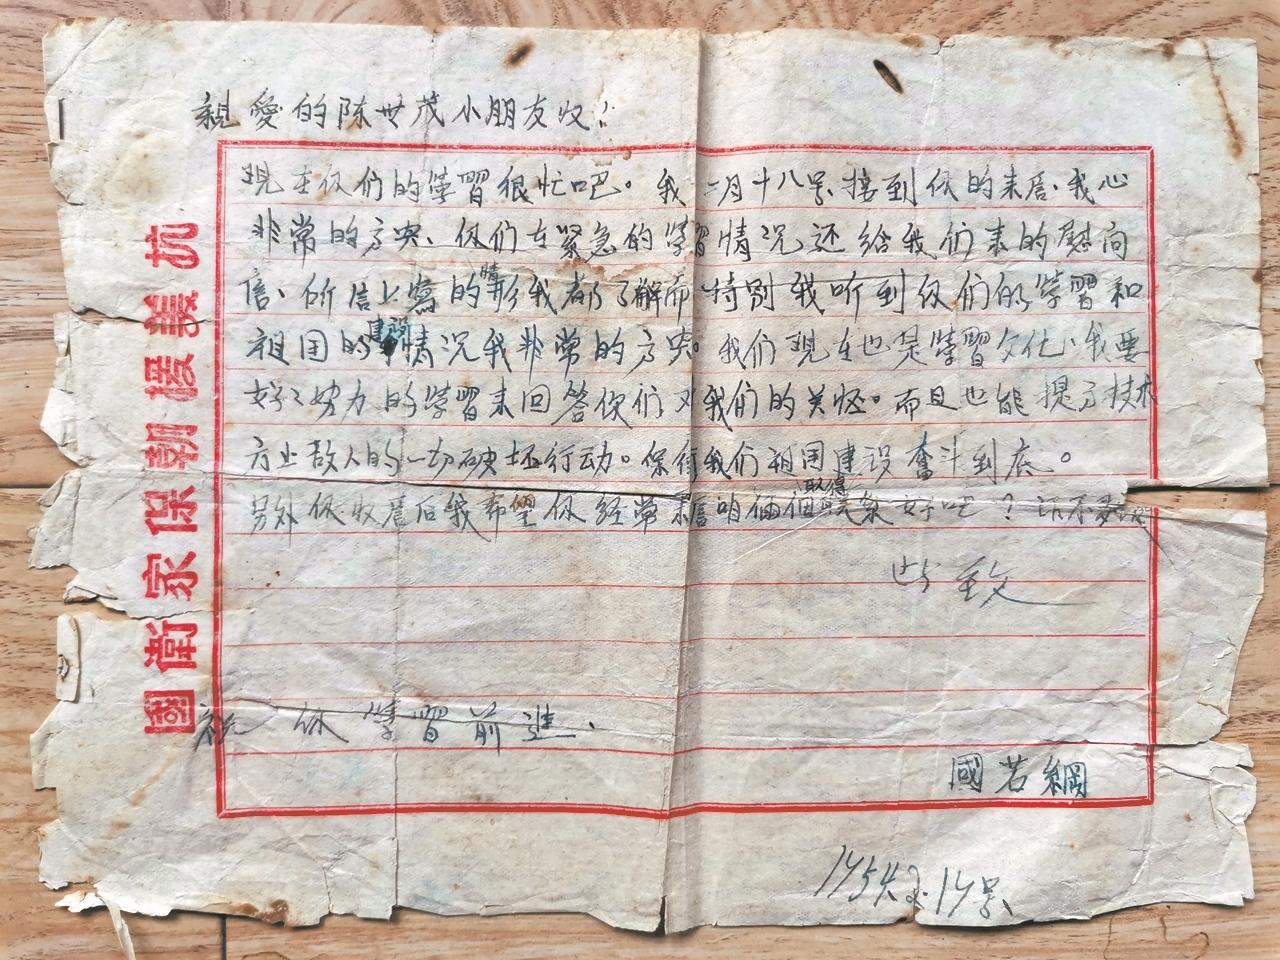 親愛的陈世茂小朋友收:
現在伱们的學習很忙吧。我二月十八号、接到伱的来信、我心
非常的方央、伱们在緊急的學習情况还给我们来的慰问
信、所信上寫的情形我都了解而特别我听到伱们的学習和
祖国的建設情况我非常的方央。我们现在也是學習文化、我要
好々努力的学習来回答你们对我们的关怪。而且也能提高技术
方止敌人的一切破坏行动。保衛我们祖国建設奮斗到底。
另外伱收信后我希望伱经常来信咱倆個取得联系好吧?话不多
此致
祝伱學習前进、
國若綱
1954.2.19号
抗美援朝保家衛國